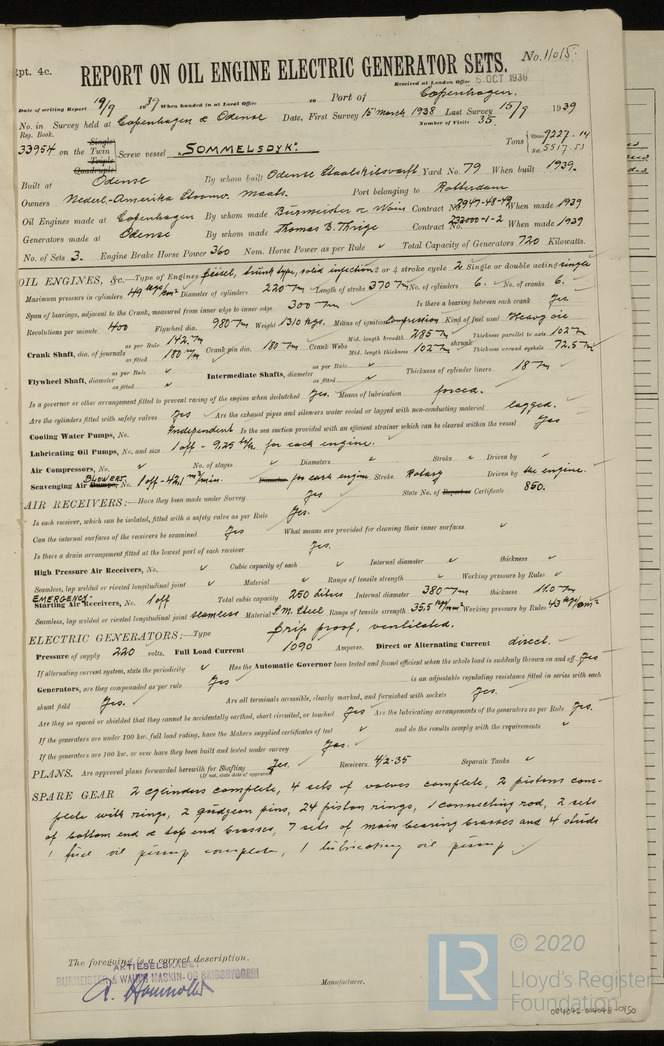 Rpt. 4c.
REPORT ON OIL ENGINE ELECTRIC GENERATOR SETS. No. 11015.
Received at London Office 5 OCT 1939
Date of writing Report 19/9 1939 When handed in at Local Office 19 Port of Copenhagen.
No. in Survey held at Copenhagen & Odense Date, First Survey 15 March 1938 Last Survey 15/9 1939
Reg. Book. Number of Visits 35.
33954 on the Single Twin Triple Quadruple Screw vessel "SOMMELSDYK." Tons Gross 9227.14 Net 5517.53
Built at Odense By whom built Odense Staalskibsvaerft Yard No. 79 When built 1939.
Owners Nederl.-Amerika Stoomv. Maats. Port belonging to Rotterdam
Oil Engines made at Copenhagen By whom made Burmeister & Wain Contract No. 2947-48-49 When made 1939
Generators made at Odense By whom made Thomas B. Thrige Contract No. 232000-1-2 When made 1939
No. of Sets 3. Engine Brake Horse Power 360 Nom. Horse Power as per Rule ✓ Total Capacity of Generators 720 Kilowatts.
OIL ENGINES, &c.—Type of Engines Diesel, trunk type, solid injection 2 or 4 stroke cycle 2 Single or double acting single
Maximum pressure in cylinders 49 kgs/cm² Diameter of cylinders 220 m/m Length of stroke 370 m/m No. of cylinders 6. No. of cranks 6.
Span of bearings, adjacent to the Crank, measured from inner edge to inner edge 300 m/m Is there a bearing between each crank Yes
Revolutions per minute 400 Flywheel dia. 980 m/m Weight 1310 kgs. Means of ignition Compression Kind of fuel used Heavy oil
Crank Shaft, dia. of journals as per Rule 142 m/m as fitted 180 m/m Crank pin dia. 180 m/m Crank Webs Mid. length breadth 285 m/m Mid. length thickness 102 m/m shrunk Thickness parallel to axis 102 m/m Thickness around eyehole 72.5 m/m
Flywheel Shaft, diameter as per Rule ✓ as fitted ✓ Intermediate Shafts, diameter as per Rule ✓ as fitted ✓ Thickness of cylinder liners 18 m/m
Is a governor or other arrangement fitted to prevent racing of the engine when declutched Yes. Means of lubrication forced.
Are the cylinders fitted with safety valves Yes Are the exhaust pipes and silencers water cooled or lagged with non-conducting material lagged.
Cooling Water Pumps, No. Independent Is the sea suction provided with an efficient strainer which can be cleared within the vessel Yes
Lubricating Oil Pumps, No. and size 1 off - 9,25 t/h. for each engine.
Air Compressors, No. ✓ No. of stages ✓ Diameters ✓ Stroke ✓ Driven by ✓
Scavenging Air Pumps, BLOWERS No. 1 off - 42,1 m³/min. Diameter for each engine Stroke Rotary Driven by the engine.
AIR RECEIVERS:—Have they been made under Survey Yes State No. of Report or Certificate 850.
Is each receiver, which can be isolated, fitted with a safety valve as per Rule Yes.
Can the internal surfaces of the receivers be examined Yes What means are provided for cleaning their inner surfaces ✓
Is there a drain arrangement fitted at the lowest part of each receiver Yes.
High Pressure Air Receivers, No. ✓ Cubic capacity of each ✓ Internal diameter ✓ thickness ✓
Seamless, lap welded or riveted longitudinal joint ✓ Material ✓ Range of tensile strength ✓ Working pressure by Rules ✓
EMERGENCY Starting Air Receivers, No. 1 off Total cubic capacity 250 litres Internal diameter 380 m/m thickness 11.0 m/m
Seamless, lap welded or riveted longitudinal joint seamless Material S.M. Steel Range of tensile strength 35,5 kg/mm² Working pressure by Rules 43 kgs/cm²
ELECTRIC GENERATORS:—Type Drip proof, ventilated.
Pressure of supply 220 volts. Full Load Current 1090 Amperes. Direct or Alternating Current direct.
If alternating current system, state the periodicity ✓ Has the Automatic Governor been tested and found efficient when the whole load is suddenly thrown on and off Yes
Generators, are they compounded as per rule Yes is an adjustable regulating resistance fitted in series with each
shunt field Yes. Are all terminals accessible, clearly marked, and furnished with sockets Yes.
Are they so spaced or shielded that they cannot be accidentally earthed, short circuited, or touched Yes Are the lubricating arrangements of the generators as per Rule Yes.
If the generators are under 100 kw. full load rating, have the Makers supplied certificates of test ✓ and do the results comply with the requirements ✓
If the generators are 100 kw. or over have they been built and tested under survey Yes.
PLANS. Are approved plans forwarded herewith for Shafting Yes. Receivers 4/2-35 Separate Tanks ✓
(If not, state date of approval)
SPARE GEAR 2 cylinders complete, 4 sets of valves complete, 2 pistons com-
plete with rings, 2 gudgeon pins, 24 piston rings, 1 connecting rod, 2 sets
of bottom end & top end brasses, 7 sets of main bearing brasses and 4 studs
1 fuel oil pump complete, 1 lubricating oil pump.
The foregoing is a correct description,
AKTIESELSKABET
BURMEISTER & WAIN'S MASKIN- OG SKIBSBYGGERI
Manufacturer.
LR © 2020
Lloyd's Register
Foundation
004042-004048-0150